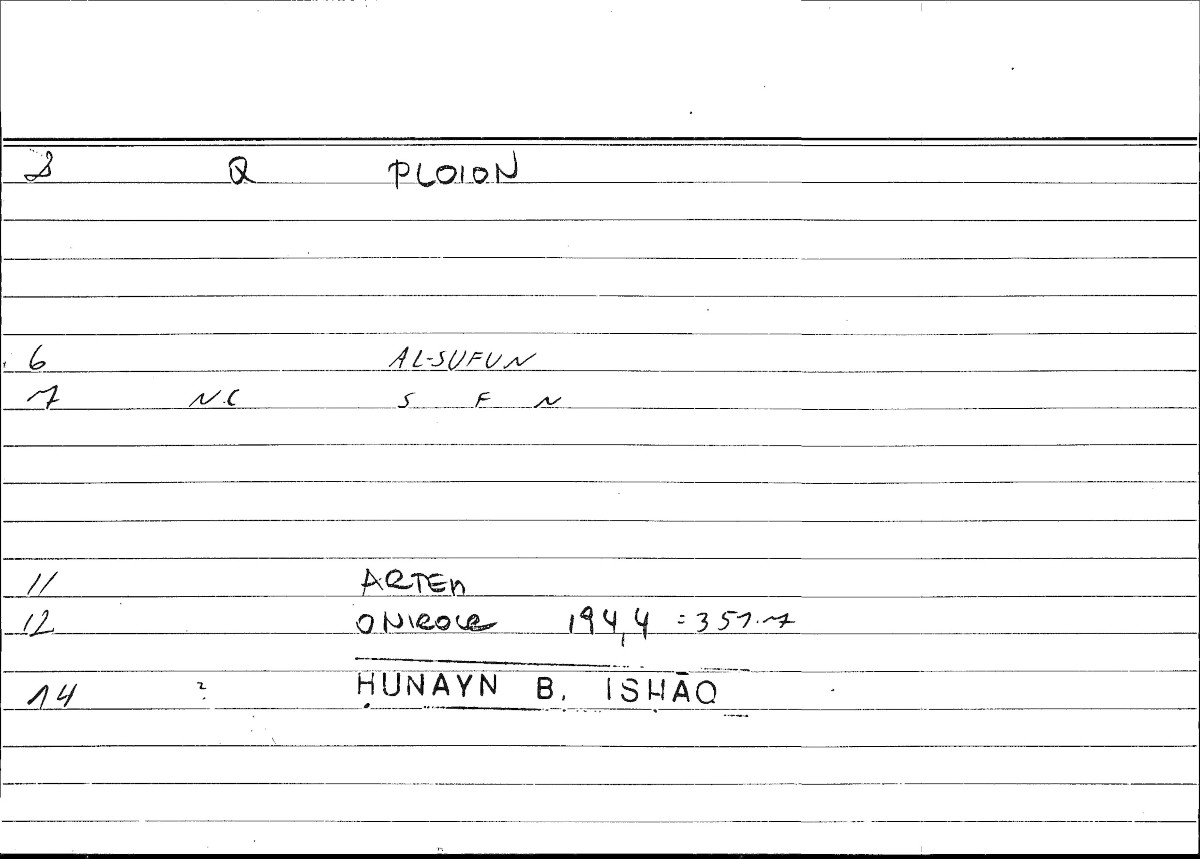 2 Q PLOION
6 AL-SUFUN
7 N.C S F N
11 ARTEM
12 ONIROCR 194,4 = 357.7
14 ? ḤUNAYN B. ISḤĀQ